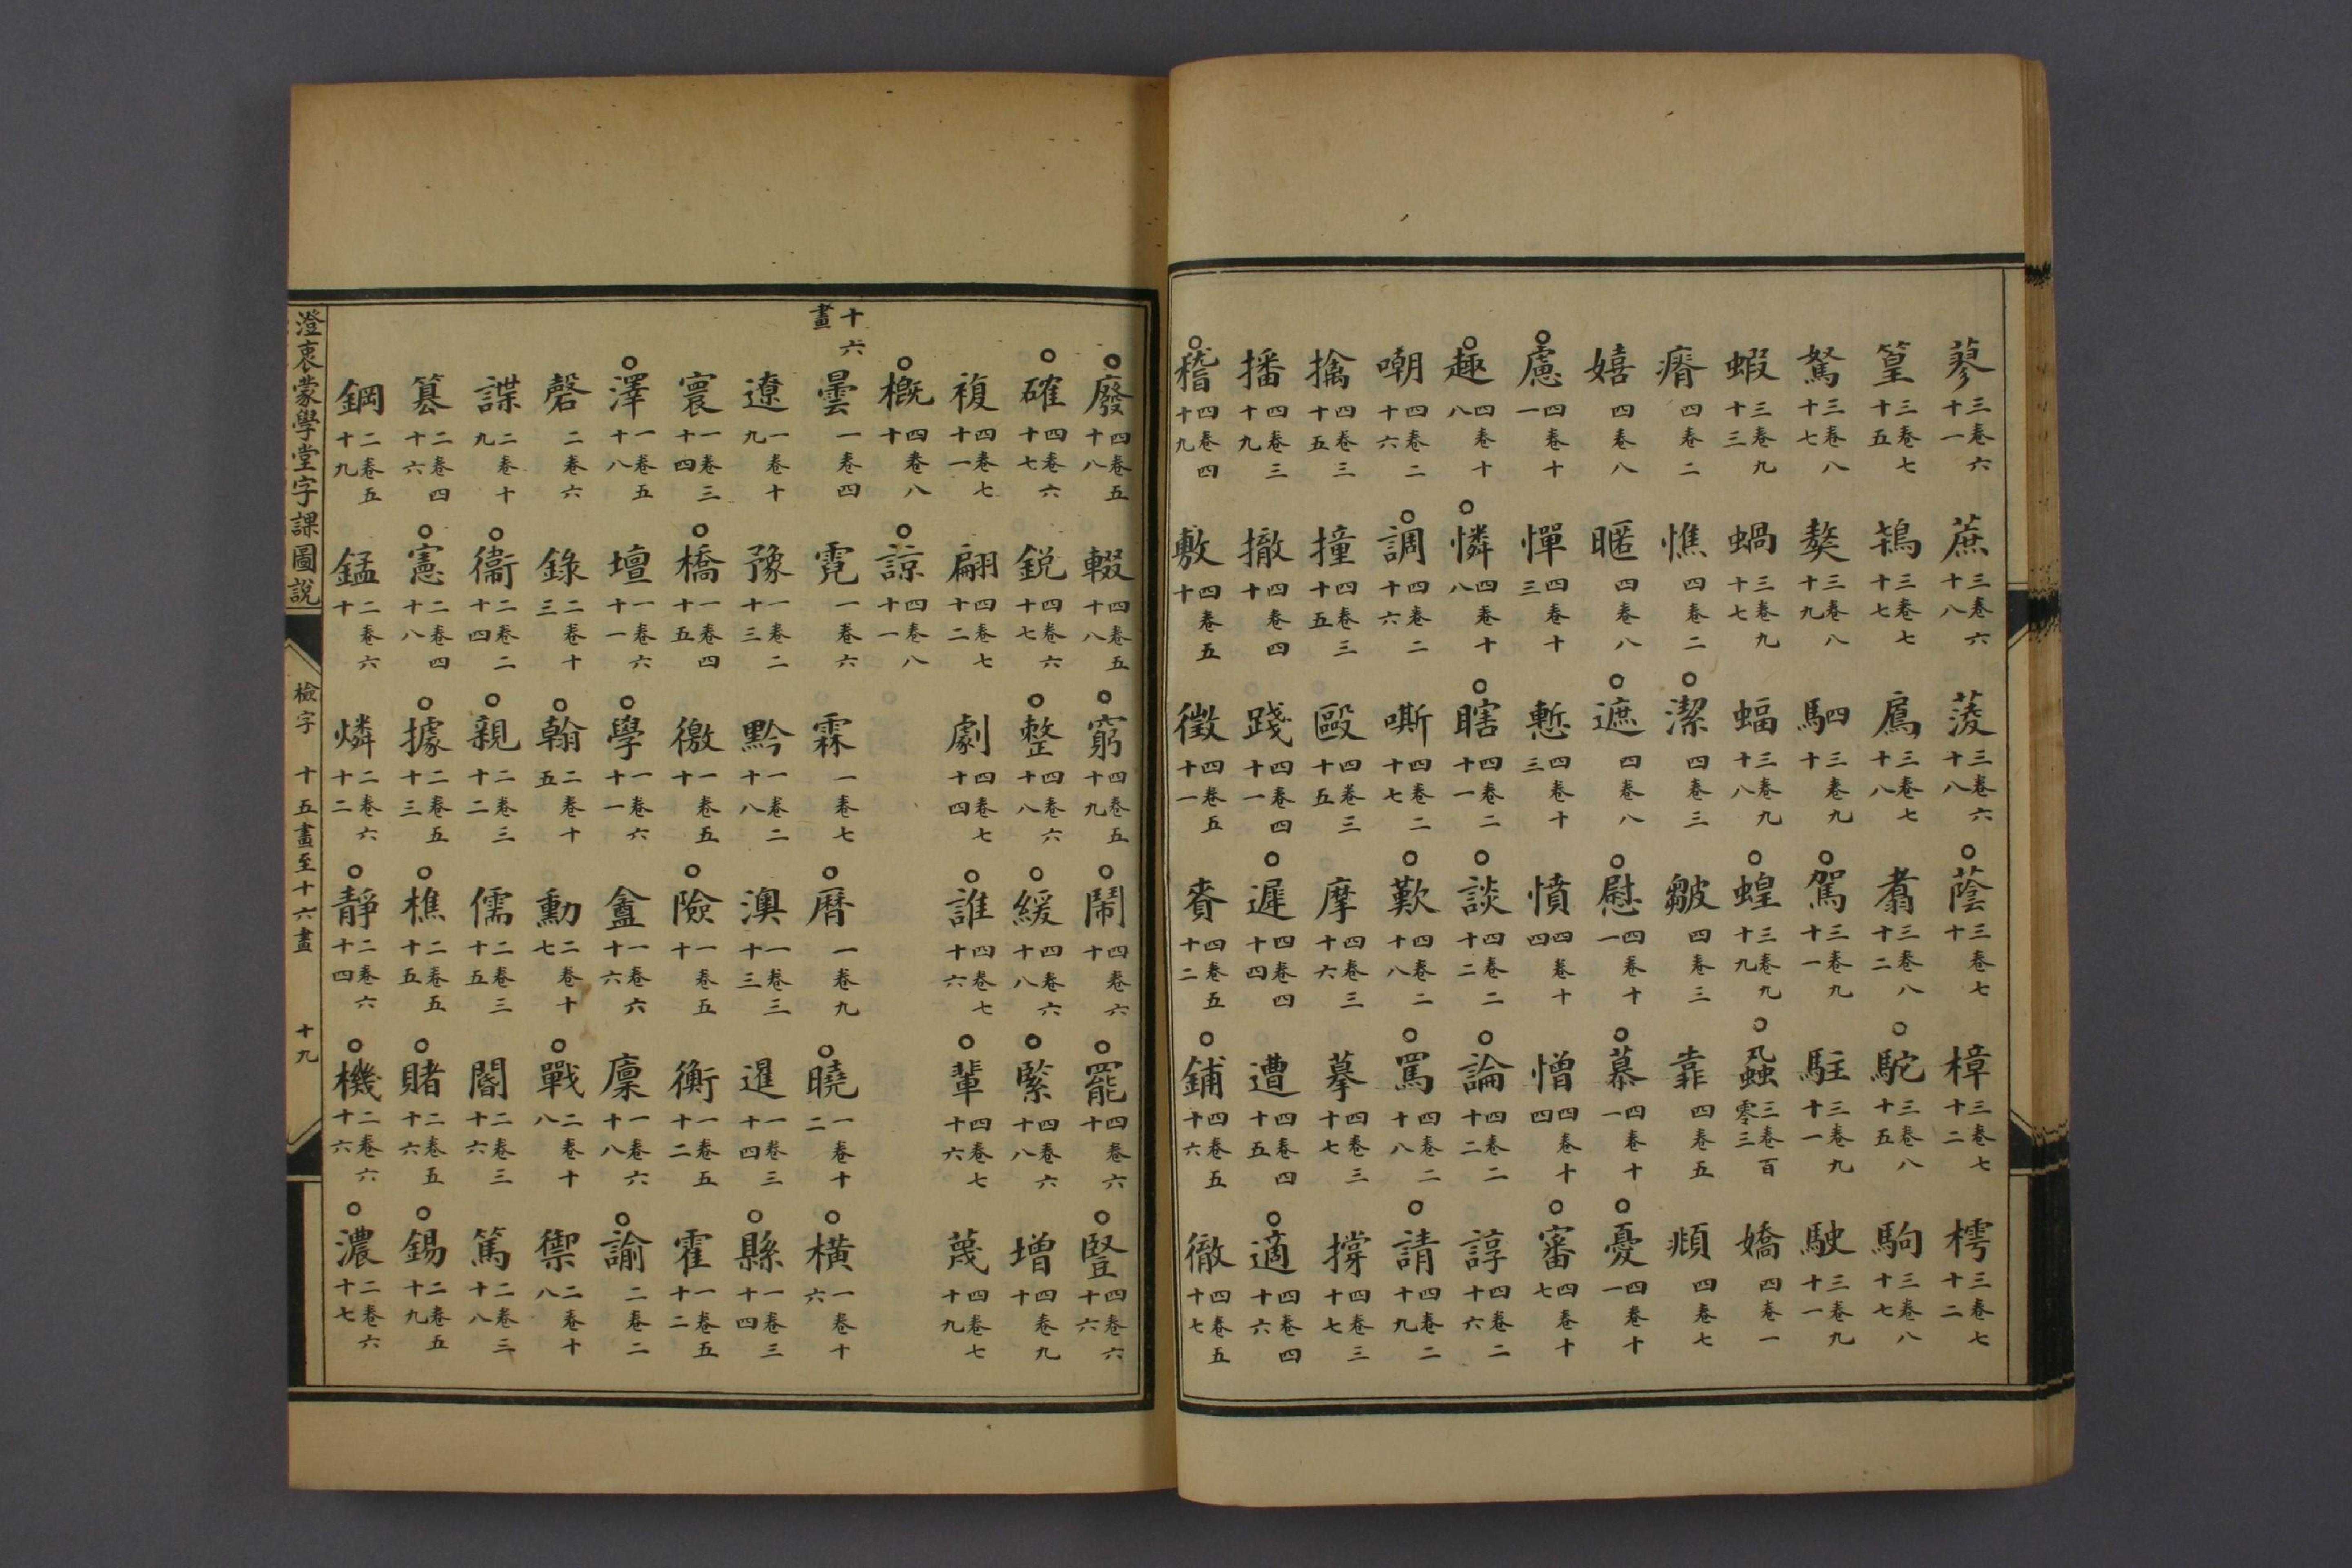 蓼三卷六十一 蔗三卷六十八 蔆三卷六十八 ○蔭三卷七十 樟三卷七十二 樗三卷七十二
篁三卷七十五 鴇三卷七十七 鴈三卷七十八 翥三卷八十二 ○駝三卷八十五 駒三卷八十七
駑三卷八十七 獒三卷八十九 駟三卷九十 ○駕三卷九十一 駐三卷九十一 駛三卷九十一
蝦三卷九十三 蝸三卷九十七 蝠三卷九十八 ○蝗三卷九十九 ○蝨三卷百零三 嬌四卷一
瘠四卷二 憔四卷二 ○潔四卷三 皺四卷三 靠四卷五 頫四卷七
嬉四卷八 暱四卷八 ○遮四卷八 ○慰四卷十一 ○慕四卷十一 ○憂四卷十一
○慮四卷十一 憚四卷十三 慙四卷十三 憤四卷十四 憎四卷十四 ○審四卷十七
○趣四卷十八 ○憐四卷十八 ○瞎四卷二十一 ○談四卷二十二 ○論四卷二十二 諄四卷二十六
嘲四卷二十六 ○調四卷二十六 嘶四卷二十七 ○歎四卷二十八 ○罵四卷二十八 ○請四卷二十九
擒四卷三十五 撞四卷三十五 毆四卷三十五 摩四卷三十六 摹四卷三十七 撐四卷三十七
播四卷三十九 撤四卷四十 踐四卷四十一 ○遲四卷四十四 遭四卷四十五 ○適四卷四十六
○稽四卷四十九 敷四卷五十 徵四卷五十一 賚四卷五十二 ○鋪四卷五十六 徹四卷五十七
○廢四卷五十八 輟四卷五十八 ○窮四卷五十九 ○鬧四卷六十 ○罷四卷六十 ○豎四卷六十六
○確四卷六十七 銳四卷六十七 ○整四卷六十八 ○緩四卷六十八 ○緊四卷六十八 增四卷九十
複四卷七十一 翩四卷七十二 劇四卷七十四 ○誰四卷七十六 ○輩四卷七十六 蔑四卷七十九
○概四卷八十 ○諒四卷八十一
十六畫
曇一卷四 霓一卷六 霖一卷七 ○曆一卷九 ○曉一卷十二 ○橫一卷十六
遼一卷十九 豫一卷二十三 黔一卷二十八 澳一卷三十三 暹一卷三十四 ○縣一卷三十四
寰一卷三十四 ○橋一卷四十五 徼一卷五十 ○險一卷五十 衡一卷五十二 霍一卷五十二
○澤一卷五十八 壇一卷六十一 ○學一卷六十一 盦一卷六十六 廩一卷六十八 ○諭二卷二
磬二卷六 錄二卷十三 ○翰二卷十五 勳二卷十七 ○戰二卷十八 禦二卷十八
諜二卷十九 ○衞二卷二十四 ○親二卷三十二 儒二卷三十五 閽二卷三十六 篤二卷三十八
篡二卷四十六 ○憲二卷四十八 ○據二卷五十三 ○樵二卷五十五 ○賭二卷五十六 ○錫二卷五十九
鋼二卷五十九 錳二卷六十 燐二卷六十二 ○靜二卷六十四 ○機二卷六十六 ○濃二卷六十七
澄衷蒙學堂字課圖說
檢字 十五畫至十六畫 十九